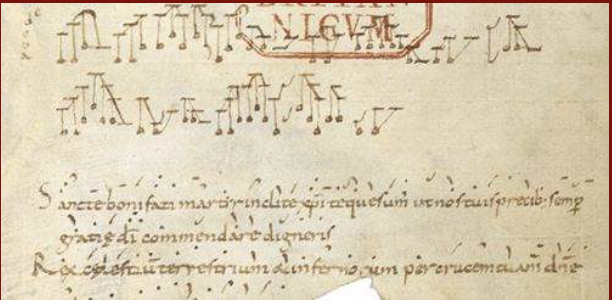 BRITAN
NICVM
Sancte bonifati martir inclite xpi te quesum ut nos tuis precib; semp
gratie di commendare digneris
Rex celestiu terrestrium & infernorum per crucem tuam dne